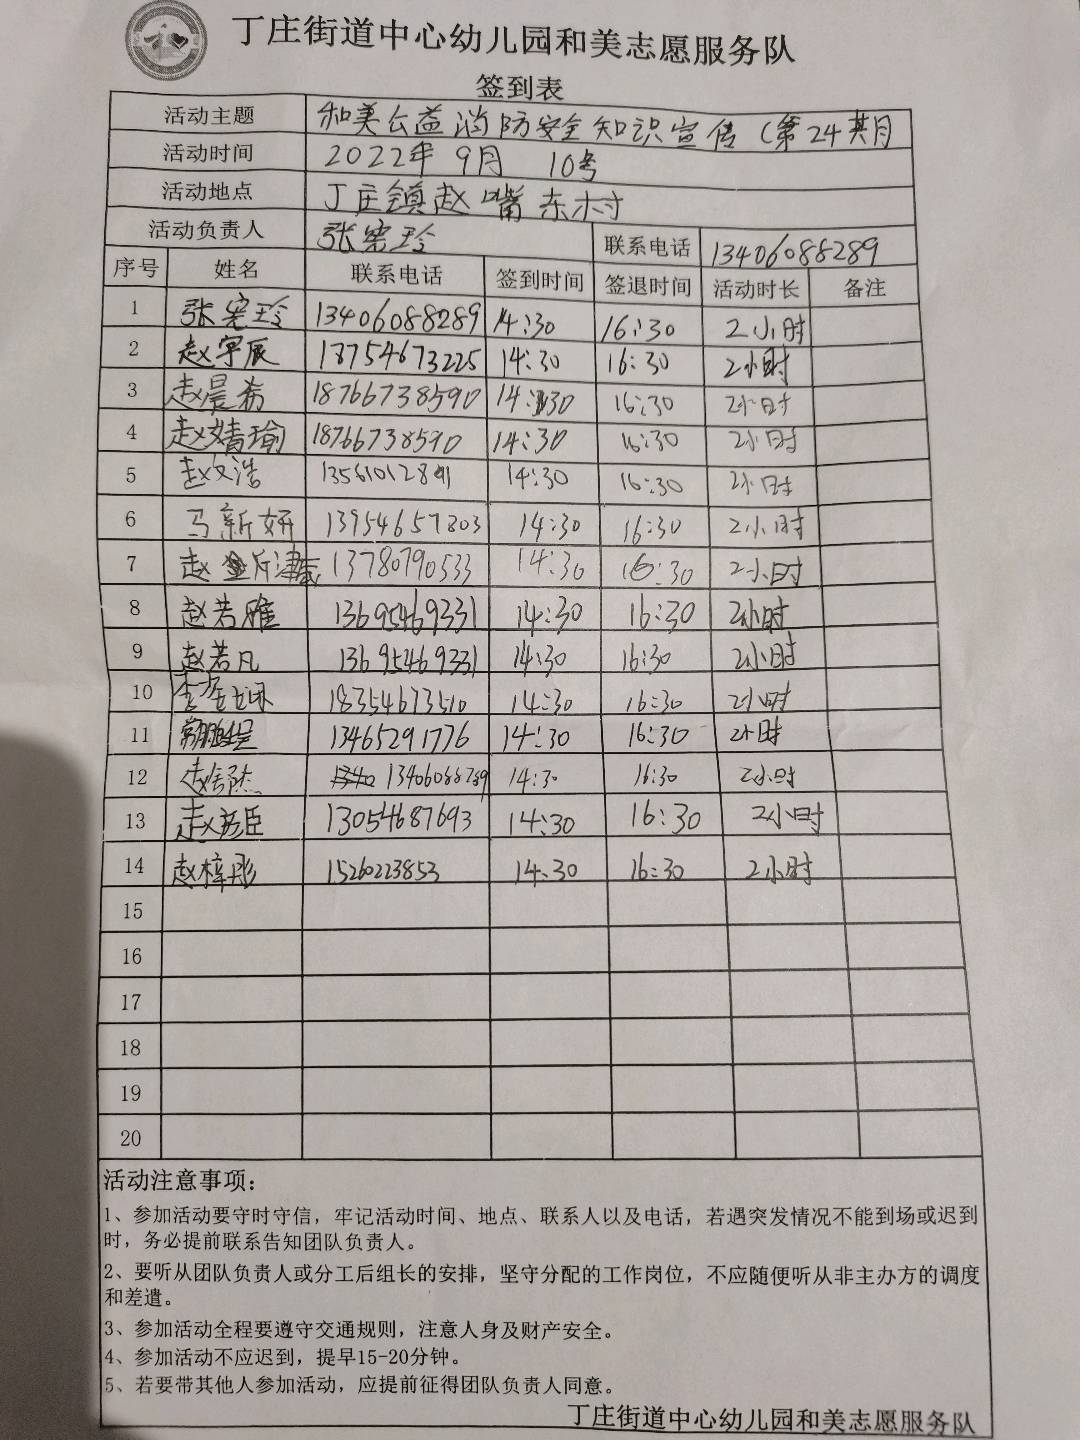 丁庄街道中心幼儿园和美志愿服务队
签到表
活动主题 和美公益消防安全知识宣传（第24期）
活动时间 2022年 9月 10号
活动地点 丁庄镇赵嘴东村
活动负责人 张宪玲 联系电话 13406088289
序号 姓名 联系电话 签到时间 签退时间 活动时长 备注
1 张宪玲 13406088289 14:30 16:30 2小时
2 赵宇辰 18754673225 14:30 16:30 2小时
3 赵晨希 18766738590 14:30 16:30 2小时
4 赵婧瑜 18766738590 14:30 16:30 2小时
5 赵文浩 14:30 16:30 2小时
6 马新妍 13954657803 14:30 16:30 2小时
7 赵 13780790533 14:30 16:30 2小时
8 赵若雅 13695469331 14:30 16:30 2小时
9 赵若凡 13695469331 14:30 16:30 2小时
10 18354673510 14:30 16:30 2小时
11 13465291776 14:30 16:30 2小时
12 14:30 16:30 2小时
13 赵彦臣 13054687693 14:30 16:30 2小时
14 赵梓彤 15260223853 14:30 16:30 2小时
15
16
17
18
19
20
活动注意事项：
1、参加活动要守时守信，牢记活动时间、地点、联系人以及电话，若遇突发情况不能到场或迟到
时，务必提前联系告知团队负责人。
2、要听从团队负责人或分工后组长的安排，坚守分配的工作岗位，不应随便听从非主办方的调度
和差遣。
3、参加活动全程要遵守交通规则，注意人身及财产安全。
4、参加活动不应迟到，提早15-20分钟。
5、若要带其他人参加活动，应提前征得团队负责人同意。
丁庄街道中心幼儿园和美志愿服务队